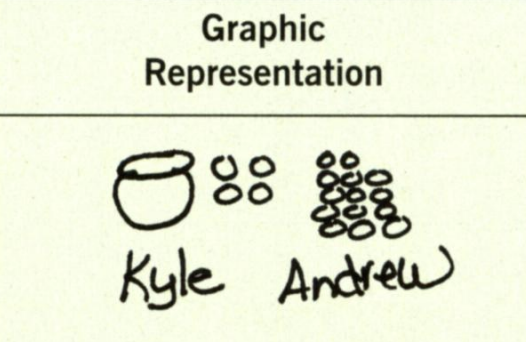 Graphic
Representation
Kyle Andrew